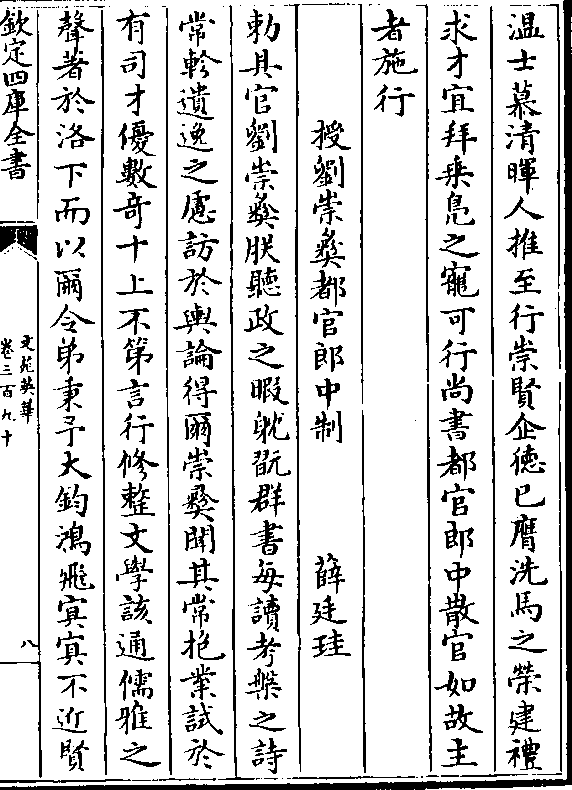 温士慕清暉人推至行崇賢企德已膺洗馬之榮建禮
求才宜拜乗鳬之寵可行尚書都官郎中散官如故主
者施行
授劉崇彜都官郎中制 薛廷珪
勅具官劉崇彜朕聽政之暇躭翫群書每讀考槃之詩
常軫遺逸之慮訪於輿論得爾崇彜聞其常抱業試於
有司才優數奇十上不第言行修整文學該通儒雅之
聲著於洛下而以爾令弟秉予大鈞鴻飛冥冥不近賢
欽定四庫全書
文苑英華
卷三百九十
八